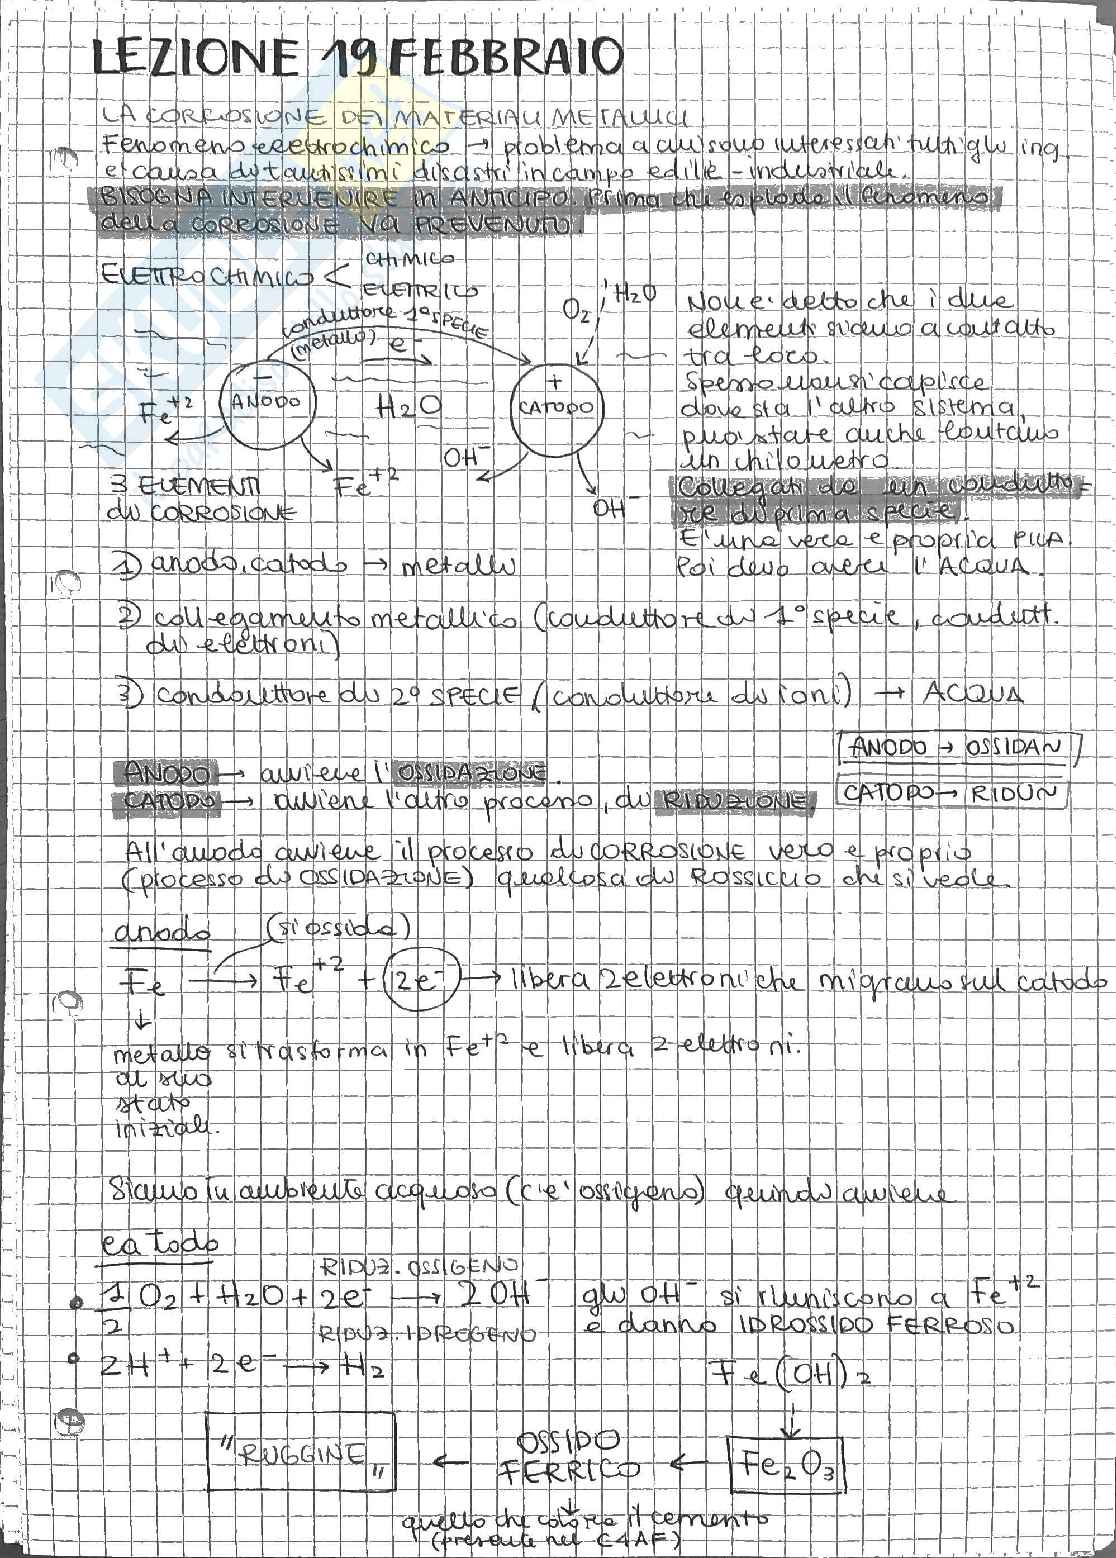 LEZIONE 19 FEBBRAIO
LA CORROSIONE DEI MATERIALI METALLICI
Fenomeno elettrochimico → problema a cui sono interessati tutti gli ing.
e causa di tantissimi disastri in campo edile-industriale.
BISOGNA INTERVENIRE in ANTICIPO. Prima che esploda il fenomeno
della CORROSIONE VA PREVENUTO.
ELETTROCHIMICO < CHIMICO
ELETTRICO
conduttore 1° SPECIE
(metallo) e⁻
O₂ H₂O
− ANODO
H₂O
+ CATODO
Fe⁺²
Fe⁺²
OH⁻
OH⁻
Non è detto che i due
elementi siano a contatto
tra loro.
Spesso non si capisce
dove sta l'altro sistema,
può stare anche lontano
un chilometro.
Collegati da un condutto=
re di prima specie.
E' una vera e propria PILA.
Poi devo averci l'ACQUA.
3 ELEMENTI
di CORROSIONE
1) anodo, catodo → metalli
2) collegamento metallico (conduttore di 1° specie, condutt.
di elettroni)
3) conduttore di 2° SPECIE (conduttore di ioni) → ACQUA
ANODO → OSSIDAN
CATODO → RIDUN
ANODO → avviene l'OSSIDAZIONE.
CATODO → avviene l'altro processo, di RIDUZIONE,
All'anodo avviene il processo di CORROSIONE vero e proprio
(processo di OSSIDAZIONE) qualcosa di ROSSICCIO che si vede.
anodo (si ossida)
Fe → Fe⁺² + 2e⁻ → libera 2 elettroni che migrano sul catodo
↓
metallo si trasforma in Fe⁺² e libera 2 elettroni.
al suo
stato
iniziale.
Siamo in ambiente acquoso (c'è l'ossigeno) quindi avviene
catodo
RIDUZ. OSSIGENO
• 1/2 O₂ + H₂O + 2e⁻ → 2OH⁻ gli OH⁻ si riuniscono a Fe⁺²
e danno IDROSSIDO FERROSO
RIDUZ. IDROGENO
• 2H⁺ + 2e⁻ → H₂
Fe(OH)₂
↓
"RUGGINE" ← OSSIDO FERRICO ← Fe₂O₃
↓
quello che colora il cemento
(presente nel C4AF)